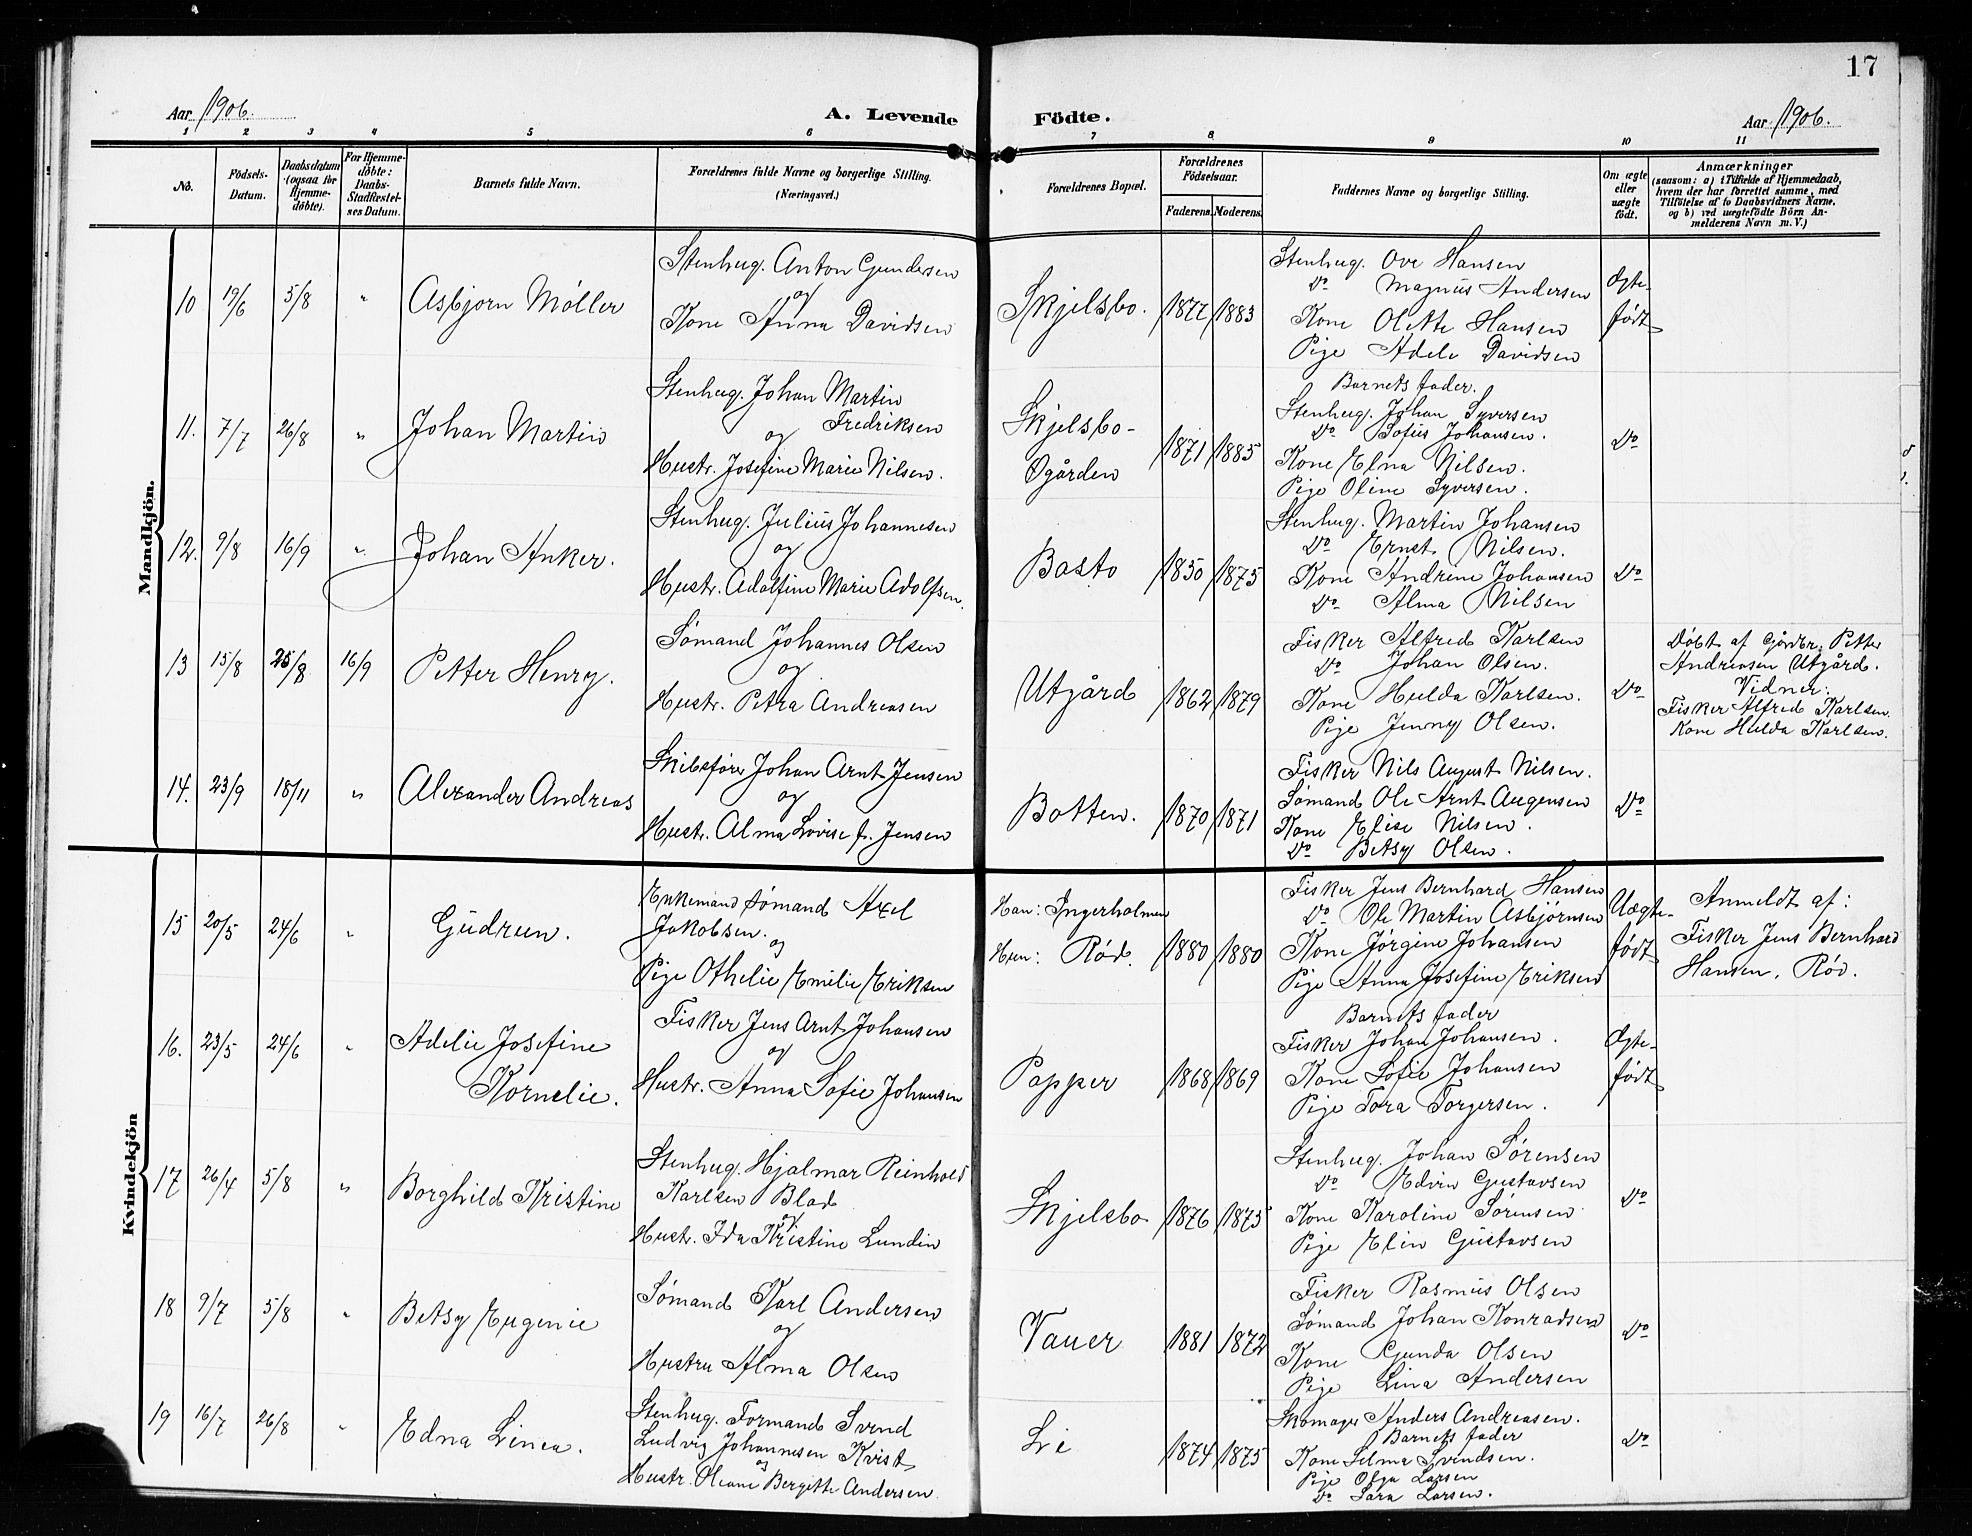 17
Aar 1906.
A. Levende
Födte.
Aar 1906.
1 2 3 4 5 6 7 8 9 10 11
No.
Födsels-Datum.
Daabsdatum (ogsaa for Hjemme-döbte).
For Hjemme-döbte: Daabs-Stadfæstel-ses Datum.
Barnets fulde Navn.
Forældrenes fulde Navne og borgerlige Stilling.
(Næringsvei.)
Forældrenes Bopæl.
Forældrenes Födselsaar.
Faderens. Moderens.
Faddernes Navne og borgerlige Stilling.
Om ægte eller uægte födt.
Anmærkninger
(saasom: a) i Tilfælde af Hjemmedaab,
hvem der har forrettet samme, med
Tilföielse af to Daabsvidners Navne,
og b) ved uægtefödte Börn An-
melderens Navn m. V.)
Mandkjön.
10 19/6 5/8 " Asbjørn Møller
Stenhug. Anton Gundersen
og
Kone Anna Davidsen
Skjelsbo. 1877 1883
Stenhug. Ove Hansen
Do Magnus Andersen
Kone Olette Hansen
Pige Adele Davidsen
Ægte-
født
11. 7/7 26/8 " Johan Martin
Stenhug. Johan Martin
Fredriksen
og
Hustr. Josefine Marie Nilsen.
Skjelsbo-
Øgården
1871 1885
Barnets fader.
Stenhug. Johan Syversen
Do Sofus Johansen.
Kone Elna Nilsen.
Pige Oline Syversen.
Do
12. 9/8 16/9 " Johan Anker.
Stenhug. Julius Johannesen
og
Hustr. Adolfine Marie Adolfsen.
Basto 1850 1875
Stenhug. Martin Johansen
Do Ernst Nilsen.
Kone Andrine Johansen
Do Alma Nilsen
Do
13 15/8 25/8 16/9 Petter Henry.
Sømand Johannes Olsen
og
Hustr. Petra Andreasen
Utgård 1862 1879
Fisker Alfred Karlsen
Do Johan Olsen.
Kone Hulda Karlsen.
Pige Jenny Olsen.
Do
Døbt af Gårdbr. Petter
Andreasen Utgård.
Vidner:
Fisker Alfred Karlsen.
Kone Hulda Karlsen.
14. 23/9 18/11 " Alexander Andreas
Skibsfører Johan Arnt Jensen
og
Hustr. Alma Lovise f. Jensen
Botten. 1870 1871
Fisker Nils August Nilsen.
Sømand Ole Arnt Augensen
Kone Elise Nilsen.
Do Betsy Olsen.
Do
Kvindekjön
15 20/5 24/6 " Gudrun.
Enkemand Sømand Axel
Jakobsen.
og
Pige Othelie Emilie Eriksen
Han: Ingerholmen
Hun: Rød.
1880 1880
Fisker Jens Bernhard Hansen
Do Ole Martin Asbjørnsen
Kone Jørgine Johansen
Pige Anna Josefine Eriksen
Uægte-
født
Anmeldt af:
Fisker Jens Bernhard
Hansen, Rød.
16. 23/5 24/6 " Adelie Josefine
Kornelie.
Fisker Jens Arnt Johansen
og
Hustr. Anna Sofie Johansen
Papper 1868 1869
Barnets fader
Fisker Johan Johansen.
Kone Sofie Johansen
Pige Tora Torgersen.
Ægte-
født
17 26/4 5/8 " Borghild Kristine
Stenhug. Hjalmar Reinhold
Karlsen Blad
og
Hustr. Ida Kristine Lundin
Skjelsbo 1876 1875
Stenhug. Johan Sørensen
Do Edvin Gustavsen
Kone Karoline Sørensen
Pige Elin Gustavsen
Do
18 9/7 5/8 " Betsy Eugenie
Sømand Karl Andersen
og
Hustru Alma Olsen
Vauer 1881 1872
Fisker Rasmus Olsen
Sømand Johan Konradsen
Kone Gunda Olsen
Pige Lina Andersen
Do
19 16/7 26/8 " Edna Linea.
Stenhug. Formand Svend
Ludvig Johannesen Kvist
og
Hustr. Oleane Bergitte Andersen
Li 1874 1875
Skomager Anders Andreasen.
Barnets fader
Kone Selma Svendsen.
Pige Olga Larsen
Do Sara Larsen.
Do